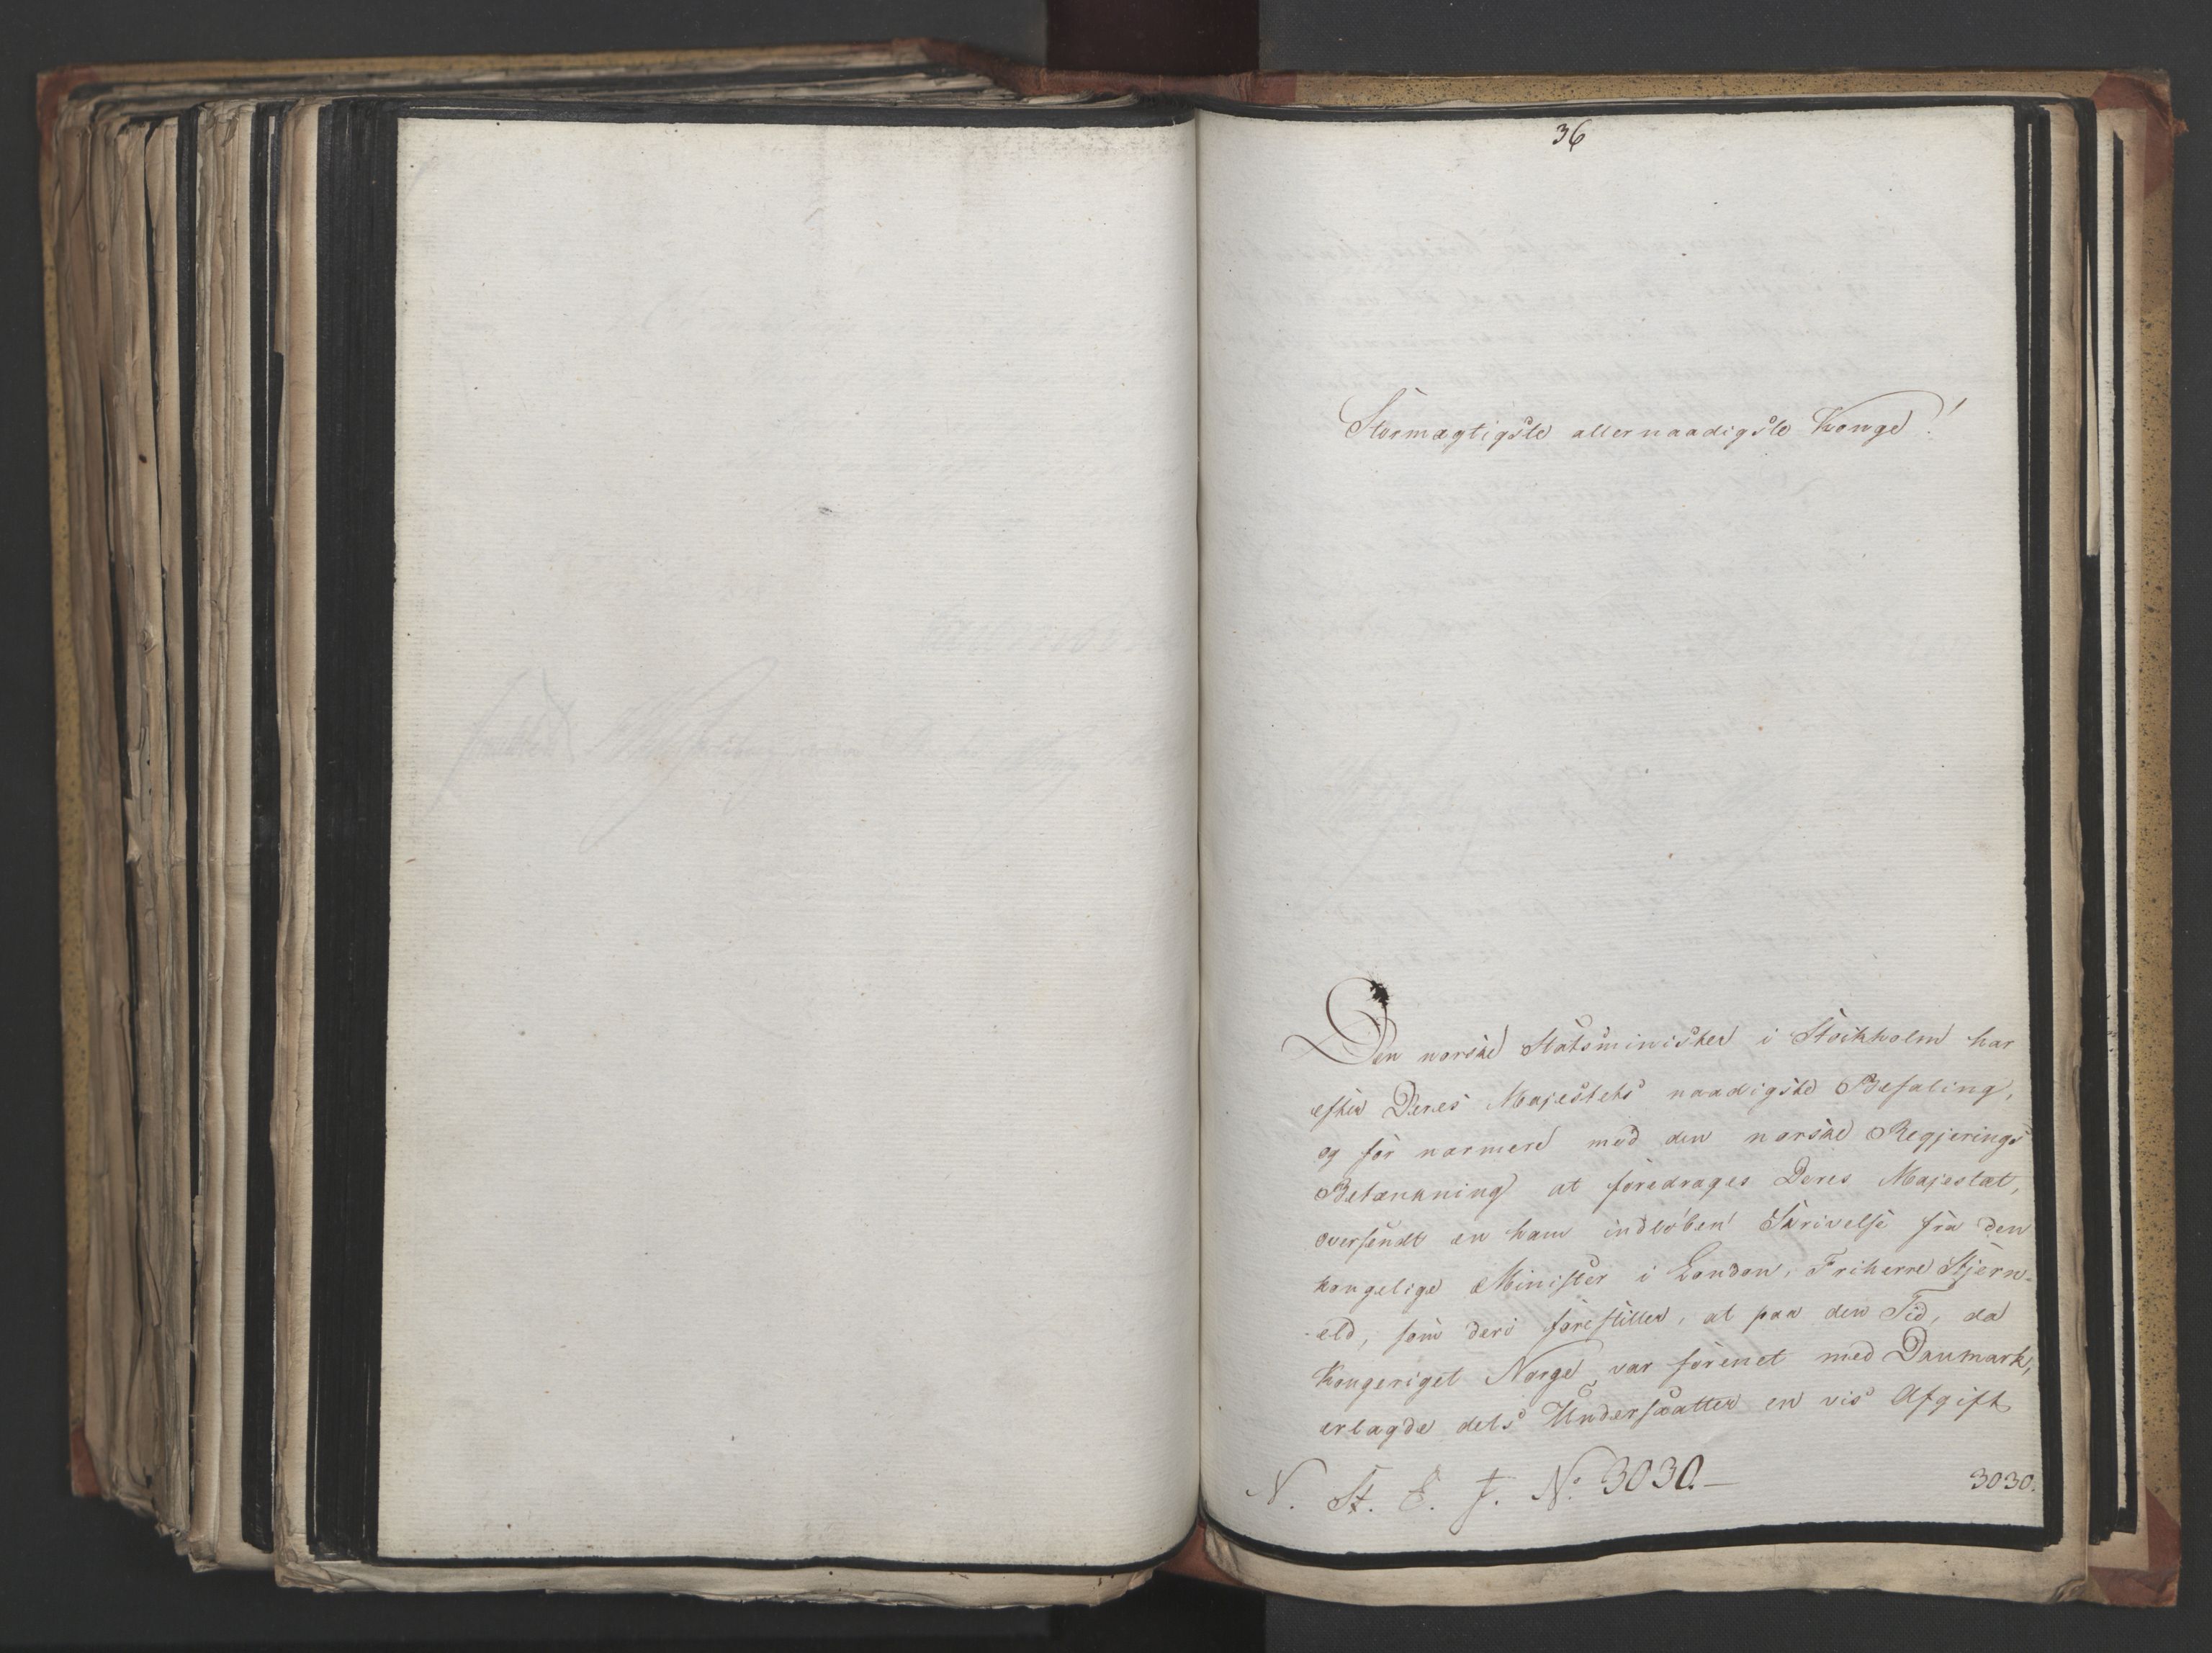 36
Stormægtigste allernaadigste Konge!
Den norske Statsminister i Stockholm har
efter Deres Majestets naadigste Befaling,
og for nærmere med den norske Regjerings
Betænkning at foredrages Deres Majestæt,
oversendt en ham indløben Skrivelse fra den
kongelige Minister i London, Friherre Stjern-
eld, som deri forestiller, at paa den Tid, da
Kongeriget Norge var forenet med Danmark,
erlagde dets Undersaatter en vis Afgift
N. St. E. J. No. 3030.—
3030.